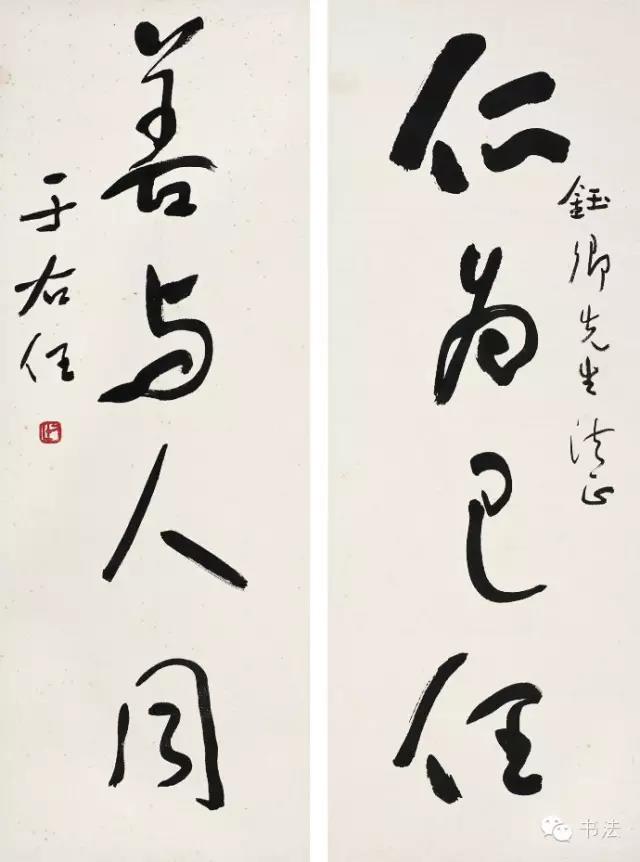 仁为己任
鈺卿先生法正
善与人同
于右任
书法